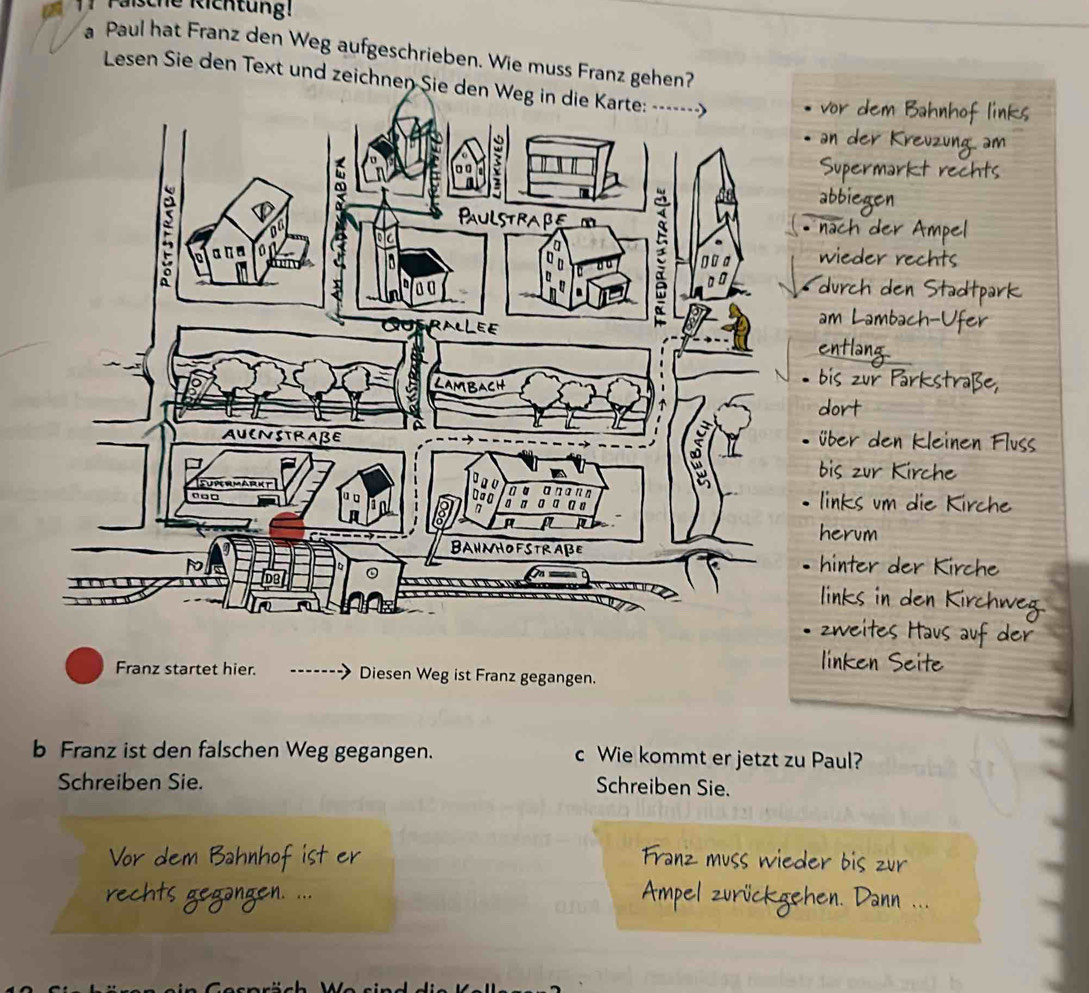 11 Falsche Richtung!
a Paul hat Franz den Weg aufgeschrieben. Wie muss Franz gehen?
Lesen Sie den Text und zeichnen Sie den Weg in die Karte:
POSTSTRAßE
AM STADTGRABEN
KIRCHWEG
LINKWEG
PAULSTRAßE
FRIEDRICHSTRAßE
QUERALLEE
PARKSTRAßE
LAMBACH
AUENSTRAßE
SEEBACH
SUPERMARKT
BAHNHOFSTRAßE
DB
Franz startet hier.
Diesen Weg ist Franz gegangen.
• vor dem Bahnhof links
• an der Kreuzung am
Supermarkt rechts
abbiegen
• nach der Ampel
wieder rechts
• durch den Stadtpark
am Lambach-Ufer
entlang
• bis zur Parkstraße,
dort
• über den kleinen Fluss
bis zur Kirche
• links um die Kirche
herum
• hinter der Kirche
links in den Kirchweg
• zweites Haus auf der
linken Seite
b Franz ist den falschen Weg gegangen.
Schreiben Sie.
Vor dem Bahnhof ist er
rechts gegangen. ...
c Wie kommt er jetzt zu Paul?
Schreiben Sie.
Franz muss wieder bis zur
Ampel zurückgehen. Dann ...